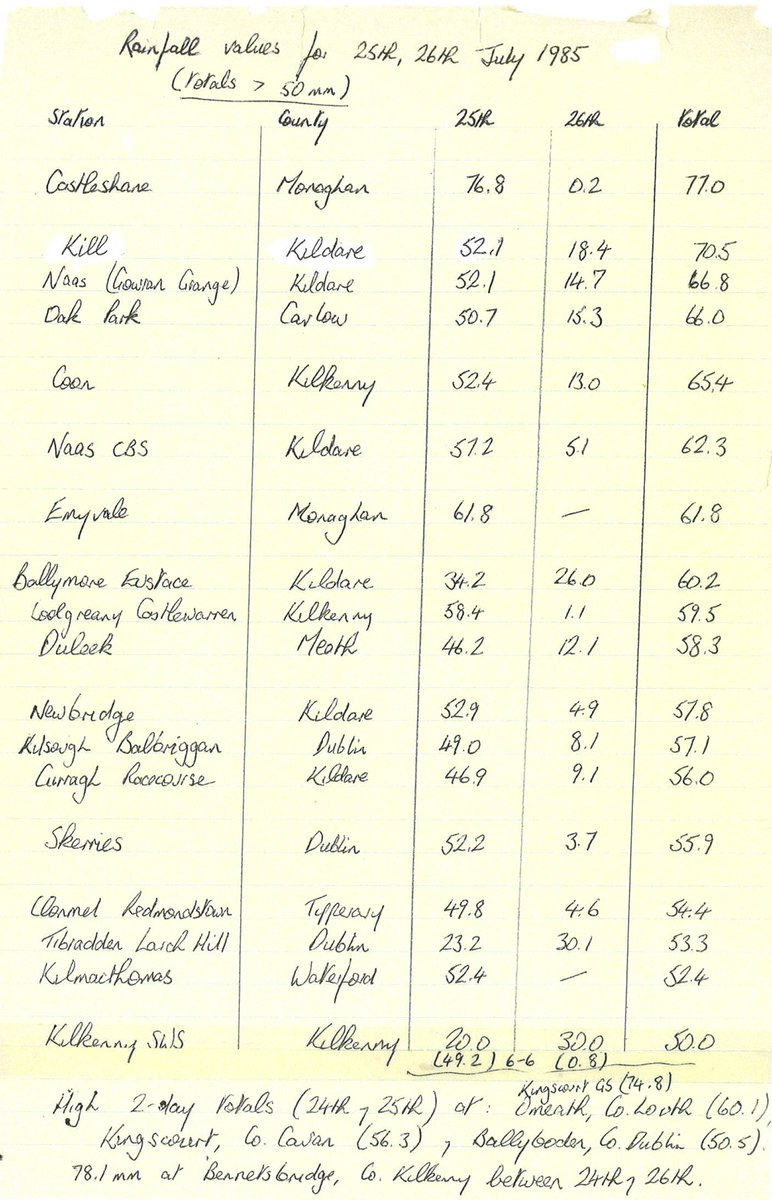 Rainfall values for 25th, 26th July 1985
(totals > 50 mm)
Station County 25th 26th total
Castleshane Monaghan 76.8 0.2 77.0
Kill Kildare 52.1 18.4 70.5
Naas (Gowran Grange) Kildare 52.1 14.7 66.8
Oak Park Carlow 50.7 15.3 66.0
Coon Kilkenny 52.4 13.0 65.4
Naas CBS Kildare 57.2 5.1 62.3
Emyvale Monaghan 61.8 — 61.8
Ballymore Eustace Kildare 34.2 26.0 60.2
Lodgreany Castlewarren Kilkenny 58.4 1.1 59.5
Duleek Meath 46.2 12.1 58.3
Newbridge Kildare 52.9 4.9 57.8
Kilsough Balbriggan Dublin 49.0 8.1 57.1
Curragh Racecourse Kildare 46.9 9.1 56.0
Skerries Dublin 52.2 3.7 55.9
Clonmel Redmondstown Tipperary 49.8 4.6 54.4
Tibradden Larch Hill Dublin 23.2 30.1 53.3
Kilmacthomas Waterford 52.4 — 52.4
Kilkenny Kilkenny 20.0 30.0 50.0
(49.2) 6-6 (0.8)
Kingscourt GS (74.8)
High 2-day totals (24th, 25th) at: Omeath, Co. Louth (60.1)
Kingscourt, Co. Cavan (56.3), Ballyboden, Co. Dublin (50.5).
78.1 mm at Bennetsbridge, Co. Kilkenny between 24th, 26th.